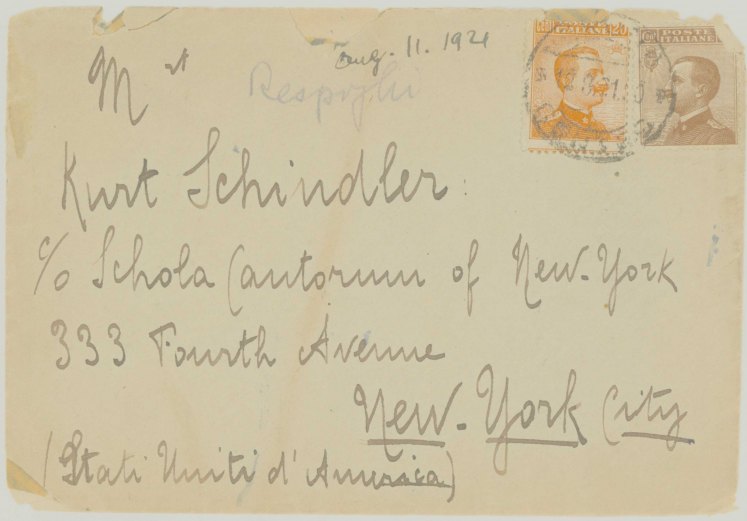 aug. 11. 1921
Respighi
POSTE ITALIANE 20
POSTE ITALIANE
Mr
Kurt Schindler
c/o Schola Cantorum of New-York
333 Fourth Avenue
New-York City
(Stati Uniti d'America)